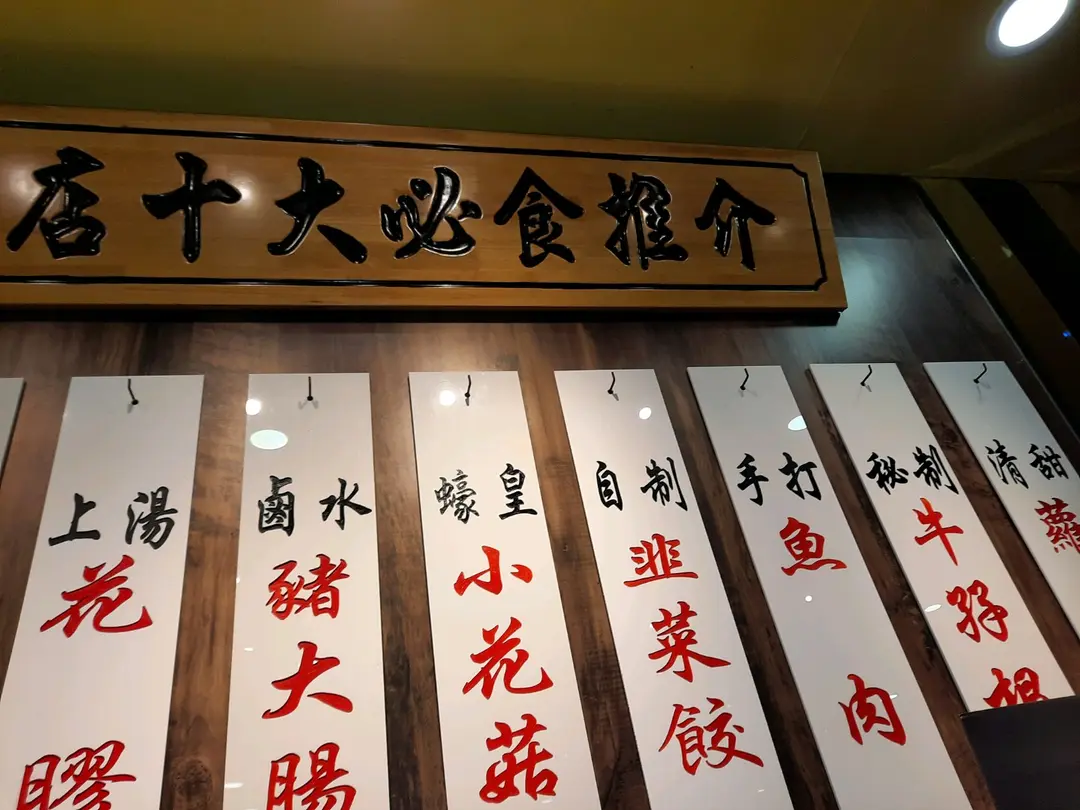 店十大必食推介
上湯
花膠
鹵水
豬大腸
蠔皇
小花菇
自制
韮菜餃
手打
魚肉
秘制
牛孖
清甜
蘿